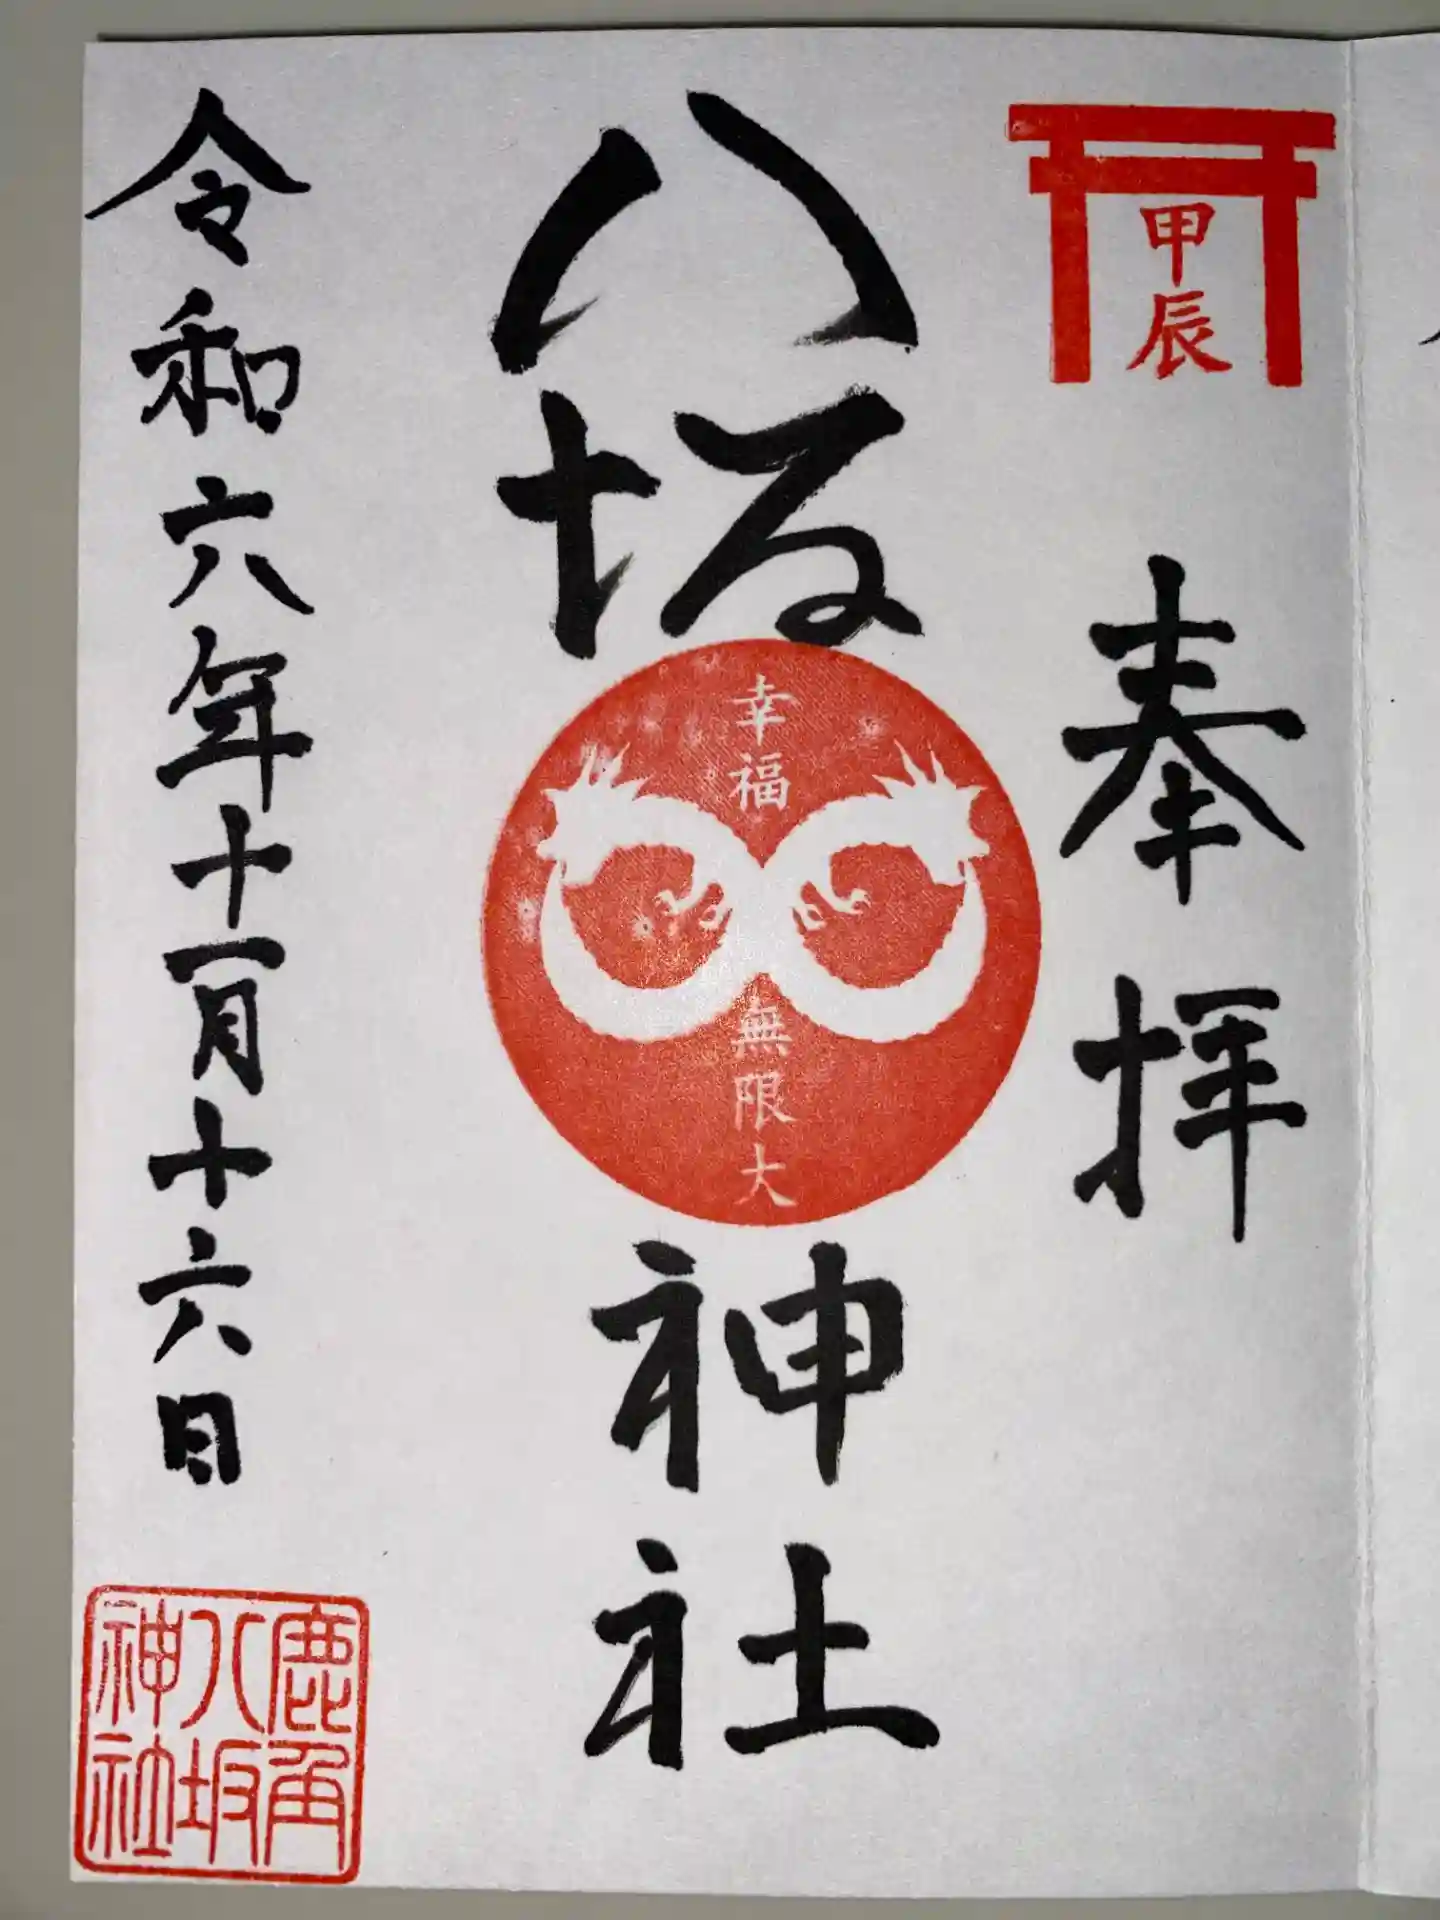 甲辰
奉拝
八坂神社
幸福
無限大
令和六年十一月十六日
鹿角
八坂
神社